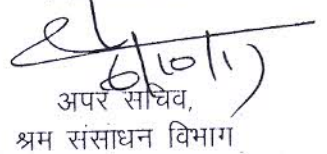 6/10/17
अपर सचिव,
श्रम संसाधन विभाग